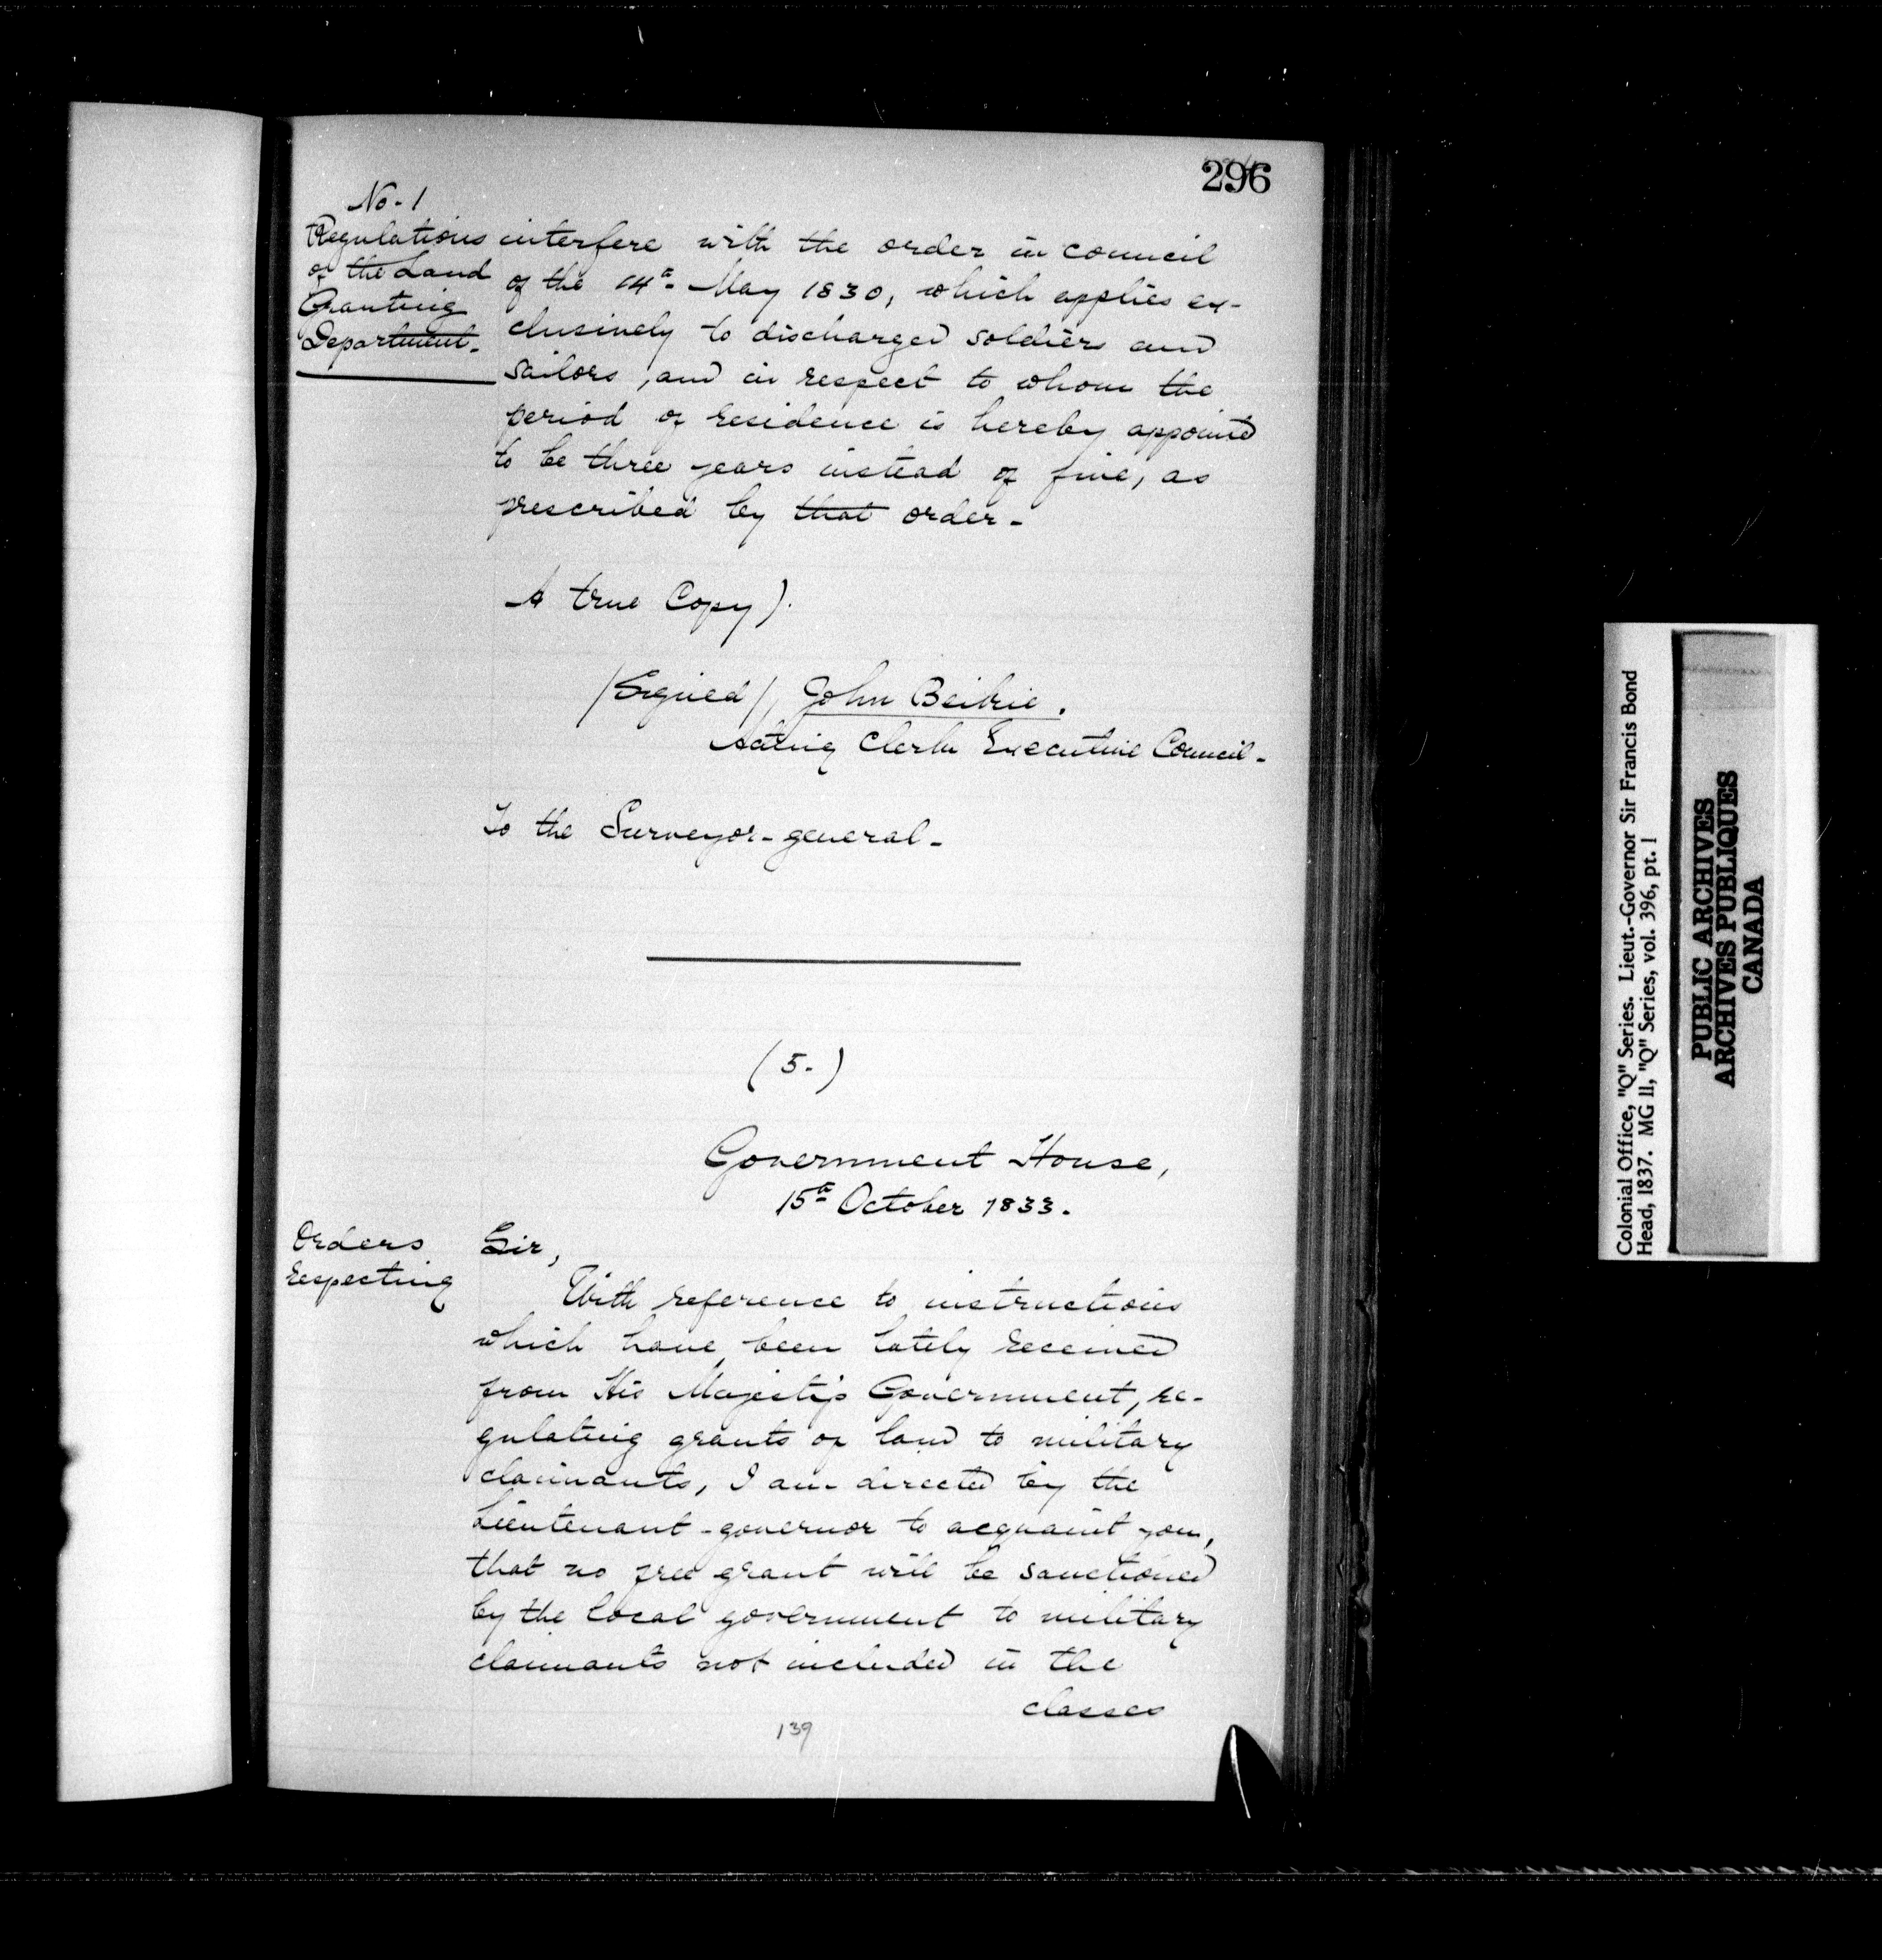 296
No. 1
Regulations
of the Land
Granting
Department.
interfere with the order in council
of the 14th May 1830, which applies ex-
clusively to discharged soldiers and
sailors, and in respect to whom the
period of residence is hereby appointed
to be three years instead of five, as
prescribed by that order.
A true Copy).
/Signed/, John Beikie.
Acting Clerk Executive Council.
To the Surveyor-general.
(5.)
Government House,
15th October 1833.
Orders
respecting
Sir,
With reference to instructions
which have been lately received
from His Majesty's Government, re-
gulating grants of land to military
claimants, I am directed by the
Lieutenant-governor to acquaint you,
that no free grant will be sanctioned
by the local government to military
claimants not included in the
classes
139
Colonial Office, "Q" Series. Lieut.-Governor Sir Francis Bond
Head, 1837. MG 11, "Q" Series, vol. 396, pt. 1
PUBLIC ARCHIVES
ARCHIVES PUBLIQUES
CANADA